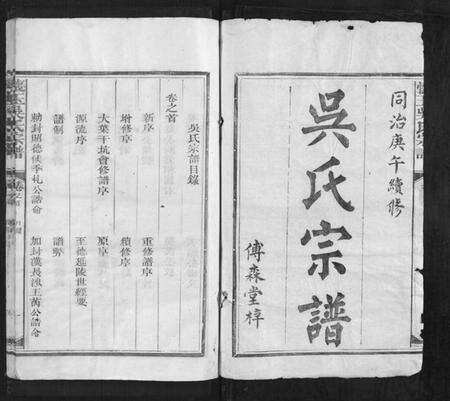 同治庚午續修
吳氏宗譜
傅森堂梓
吳氏宗譜目錄
卷之首
新序
重修譜序
增修序
續修序
大葉干坑會修序
原序
源流序
至德延陵世經要
譜制
譜弊
勅封昭德侯季札公誥命
加封漢長沙王芮公誥命